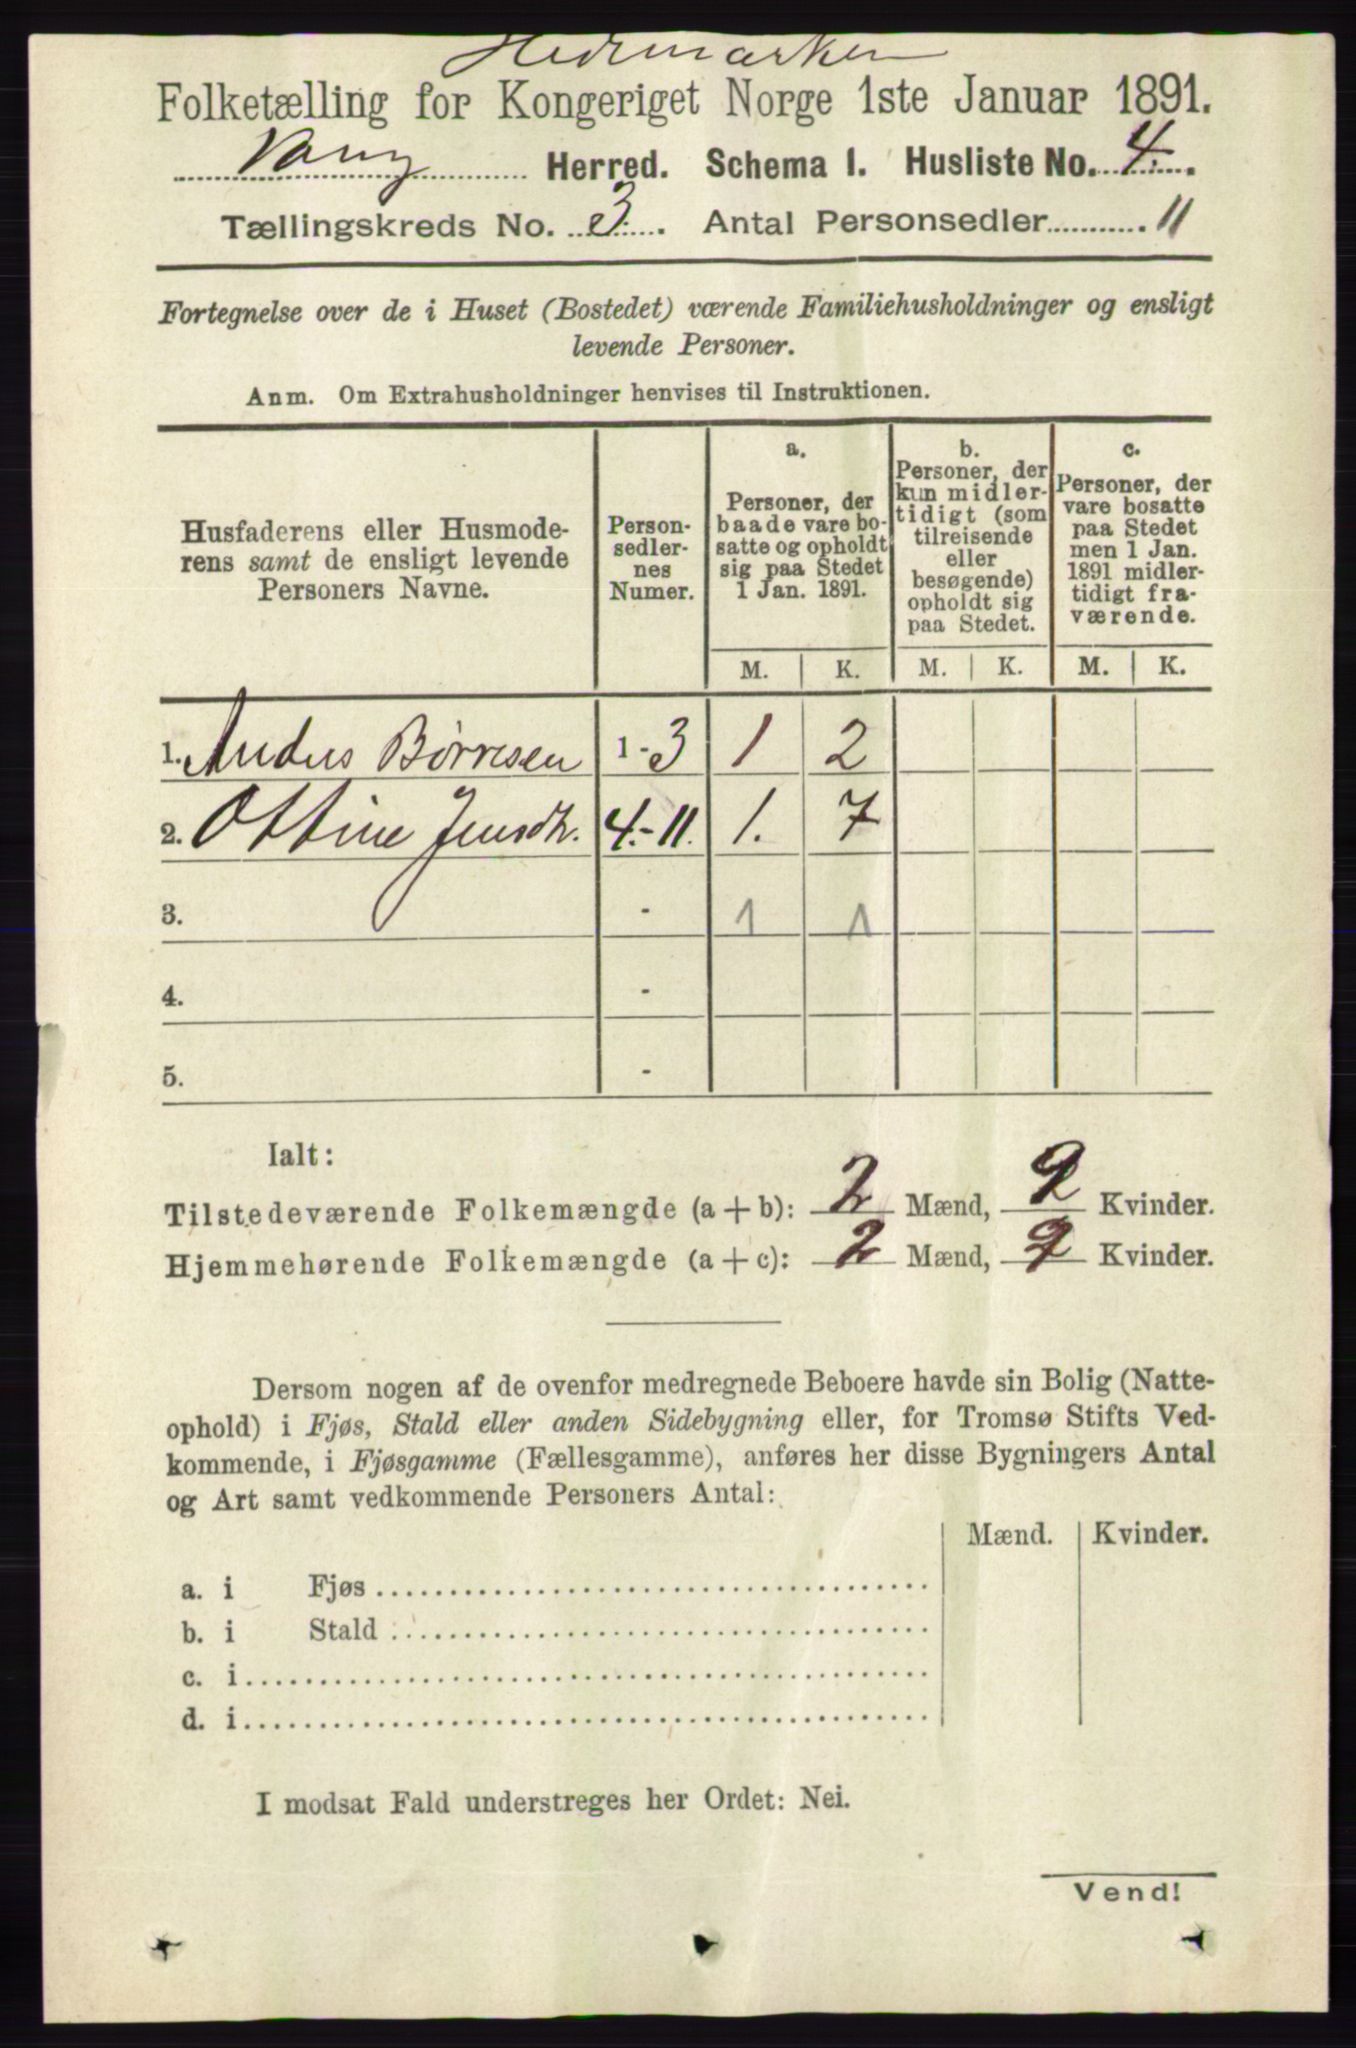 Hedemarken
Folketælling for Kongeriget Norge 1ste Januar 1891.
Vang Herred. Schema 1. Husliste No. 4.
Tællingskreds No. 3. Antal Personsedler 11
Fortegnelse over de i Huset (Bostedet) værende Familiehusholdninger og ensligt
levende Personer.
Anm. Om Extrahusholdninger henvises til Instruktionen.
Husfaderens eller Husmode-
rens samt de ensligt levende
Personers Navne.
Person-
sedler-
nes
Numer.
a.
Personer, der
baade vare bo-
satte og opholdt
sig paa Stedet
1 Jan. 1891.
b.
Personer, der
kun midler-
tidigt (som
tilreisende
eller
besøgende)
opholdt sig
paa Stedet.
c.
Personer, der
vare bosatte
paa Stedet
men 1 Jan.
1891 midler-
tidigt fra-
værende.
M. K. M. K. M. K.
1. Andus Børresen 1 - 3 1 2
2. Ottine Jensdt. 4.- 11. 1. 7
3. - 1 1
4. -
5. -
Ialt:
Tilstedeværende Folkemængde (a + b): 2 Mænd, 9 Kvinder.
Hjemmehørende Folkemængde (a + c): 2 Mænd, 9 Kvinder.
Dersom nogen af de ovenfor medregnede Beboere havde sin Bolig (Natte-
ophold) i Fjøs, Stald eller anden Sidebygning eller, for Tromsø Stifts Ved-
kommende, i Fjøsgamme (Fællesgamme), anføres her disse Bygningers Antal
og Art samt vedkommende Personers Antal:
Mænd. Kvinder.
a. i Fjøs
b. i Stald
c. i
d. i
I modsat Fald understreges her Ordet: Nei.
Vend!